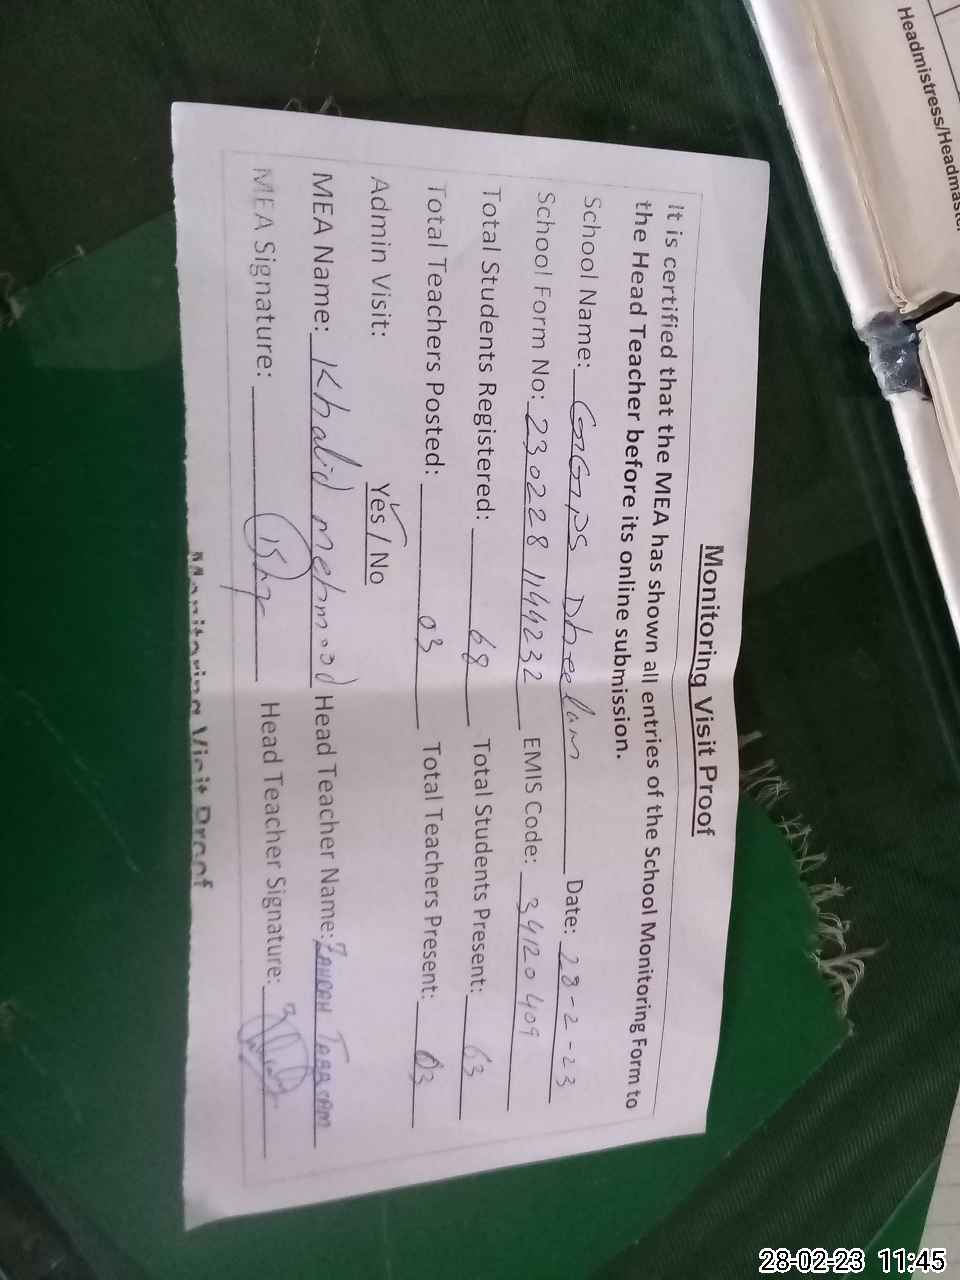 Monitoring Visit Proof
It is certified that the MEA has shown all entries of the School Monitoring Form to
the Head Teacher before its online submission.
School Name: GGPS Dheelam Date: 28-2-23
School Form No: 230228 1144232 EMIS Code: 34120409
Total Students Registered: 68 Total Students Present: 63
Total Teachers Posted: 03 Total Teachers Present: 03
Admin Visit: Yes / No
MEA Name: Khalid mehmood Head Teacher Name: ZAHRAH TABASAM
MEA Signature: Head Teacher Signature:
Monitoring Visit Proof
Headmistress/Headmaster
28-02-23 11:45